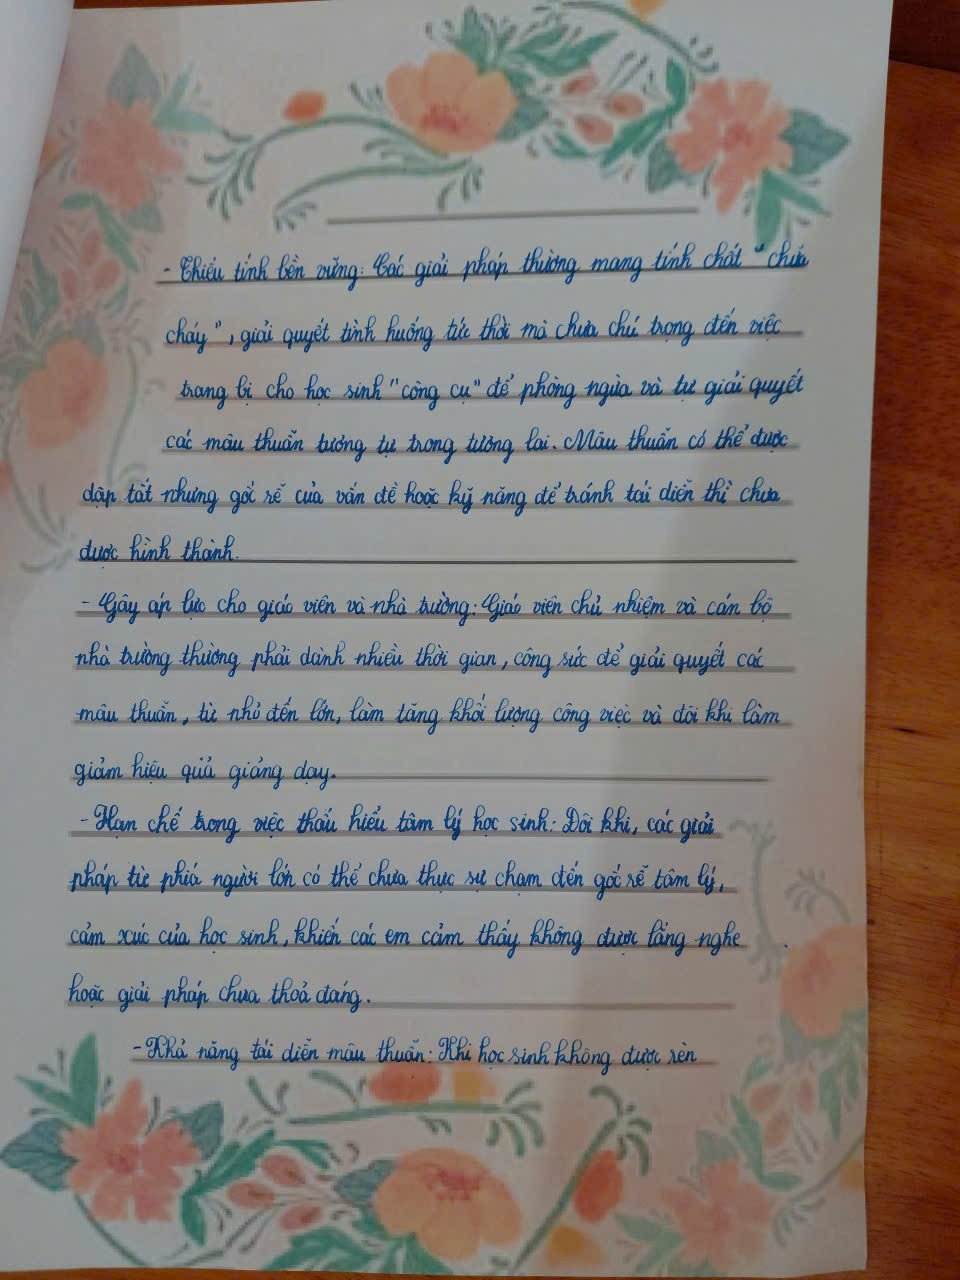 - Thiếu tính bền vững: Các giải pháp thường mang tính chất "chữa
cháy", giải quyết tình huống tức thời mà chưa chú trọng đến việc
trang bị cho học sinh "công cụ" để phòng ngừa và tự giải quyết
các mâu thuẫn tương tự trong tương lai. Mâu thuẫn có thể được
dập tắt nhưng gốc rễ của vấn đề hoặc kỹ năng để tránh tái diễn thì chưa
được hình thành.
- Gây áp lực cho giáo viên và nhà trường: Giáo viên chủ nhiệm và cán bộ
nhà trường thường phải dành nhiều thời gian, công sức để giải quyết các
mâu thuẫn, từ nhỏ đến lớn, làm tăng khối lượng công việc và đôi khi làm
giảm hiệu quả giảng dạy.
- Hạn chế trong việc thấu hiểu tâm lý học sinh: Đôi khi, các giải
pháp từ phía người lớn có thể chưa thực sự chạm đến gốc rễ tâm lý,
cảm xúc của học sinh, khiến các em cảm thấy không được lắng nghe
hoặc giải pháp chưa thoả đáng.
- Khả năng tái diễn mâu thuẫn: Khi học sinh không được rèn